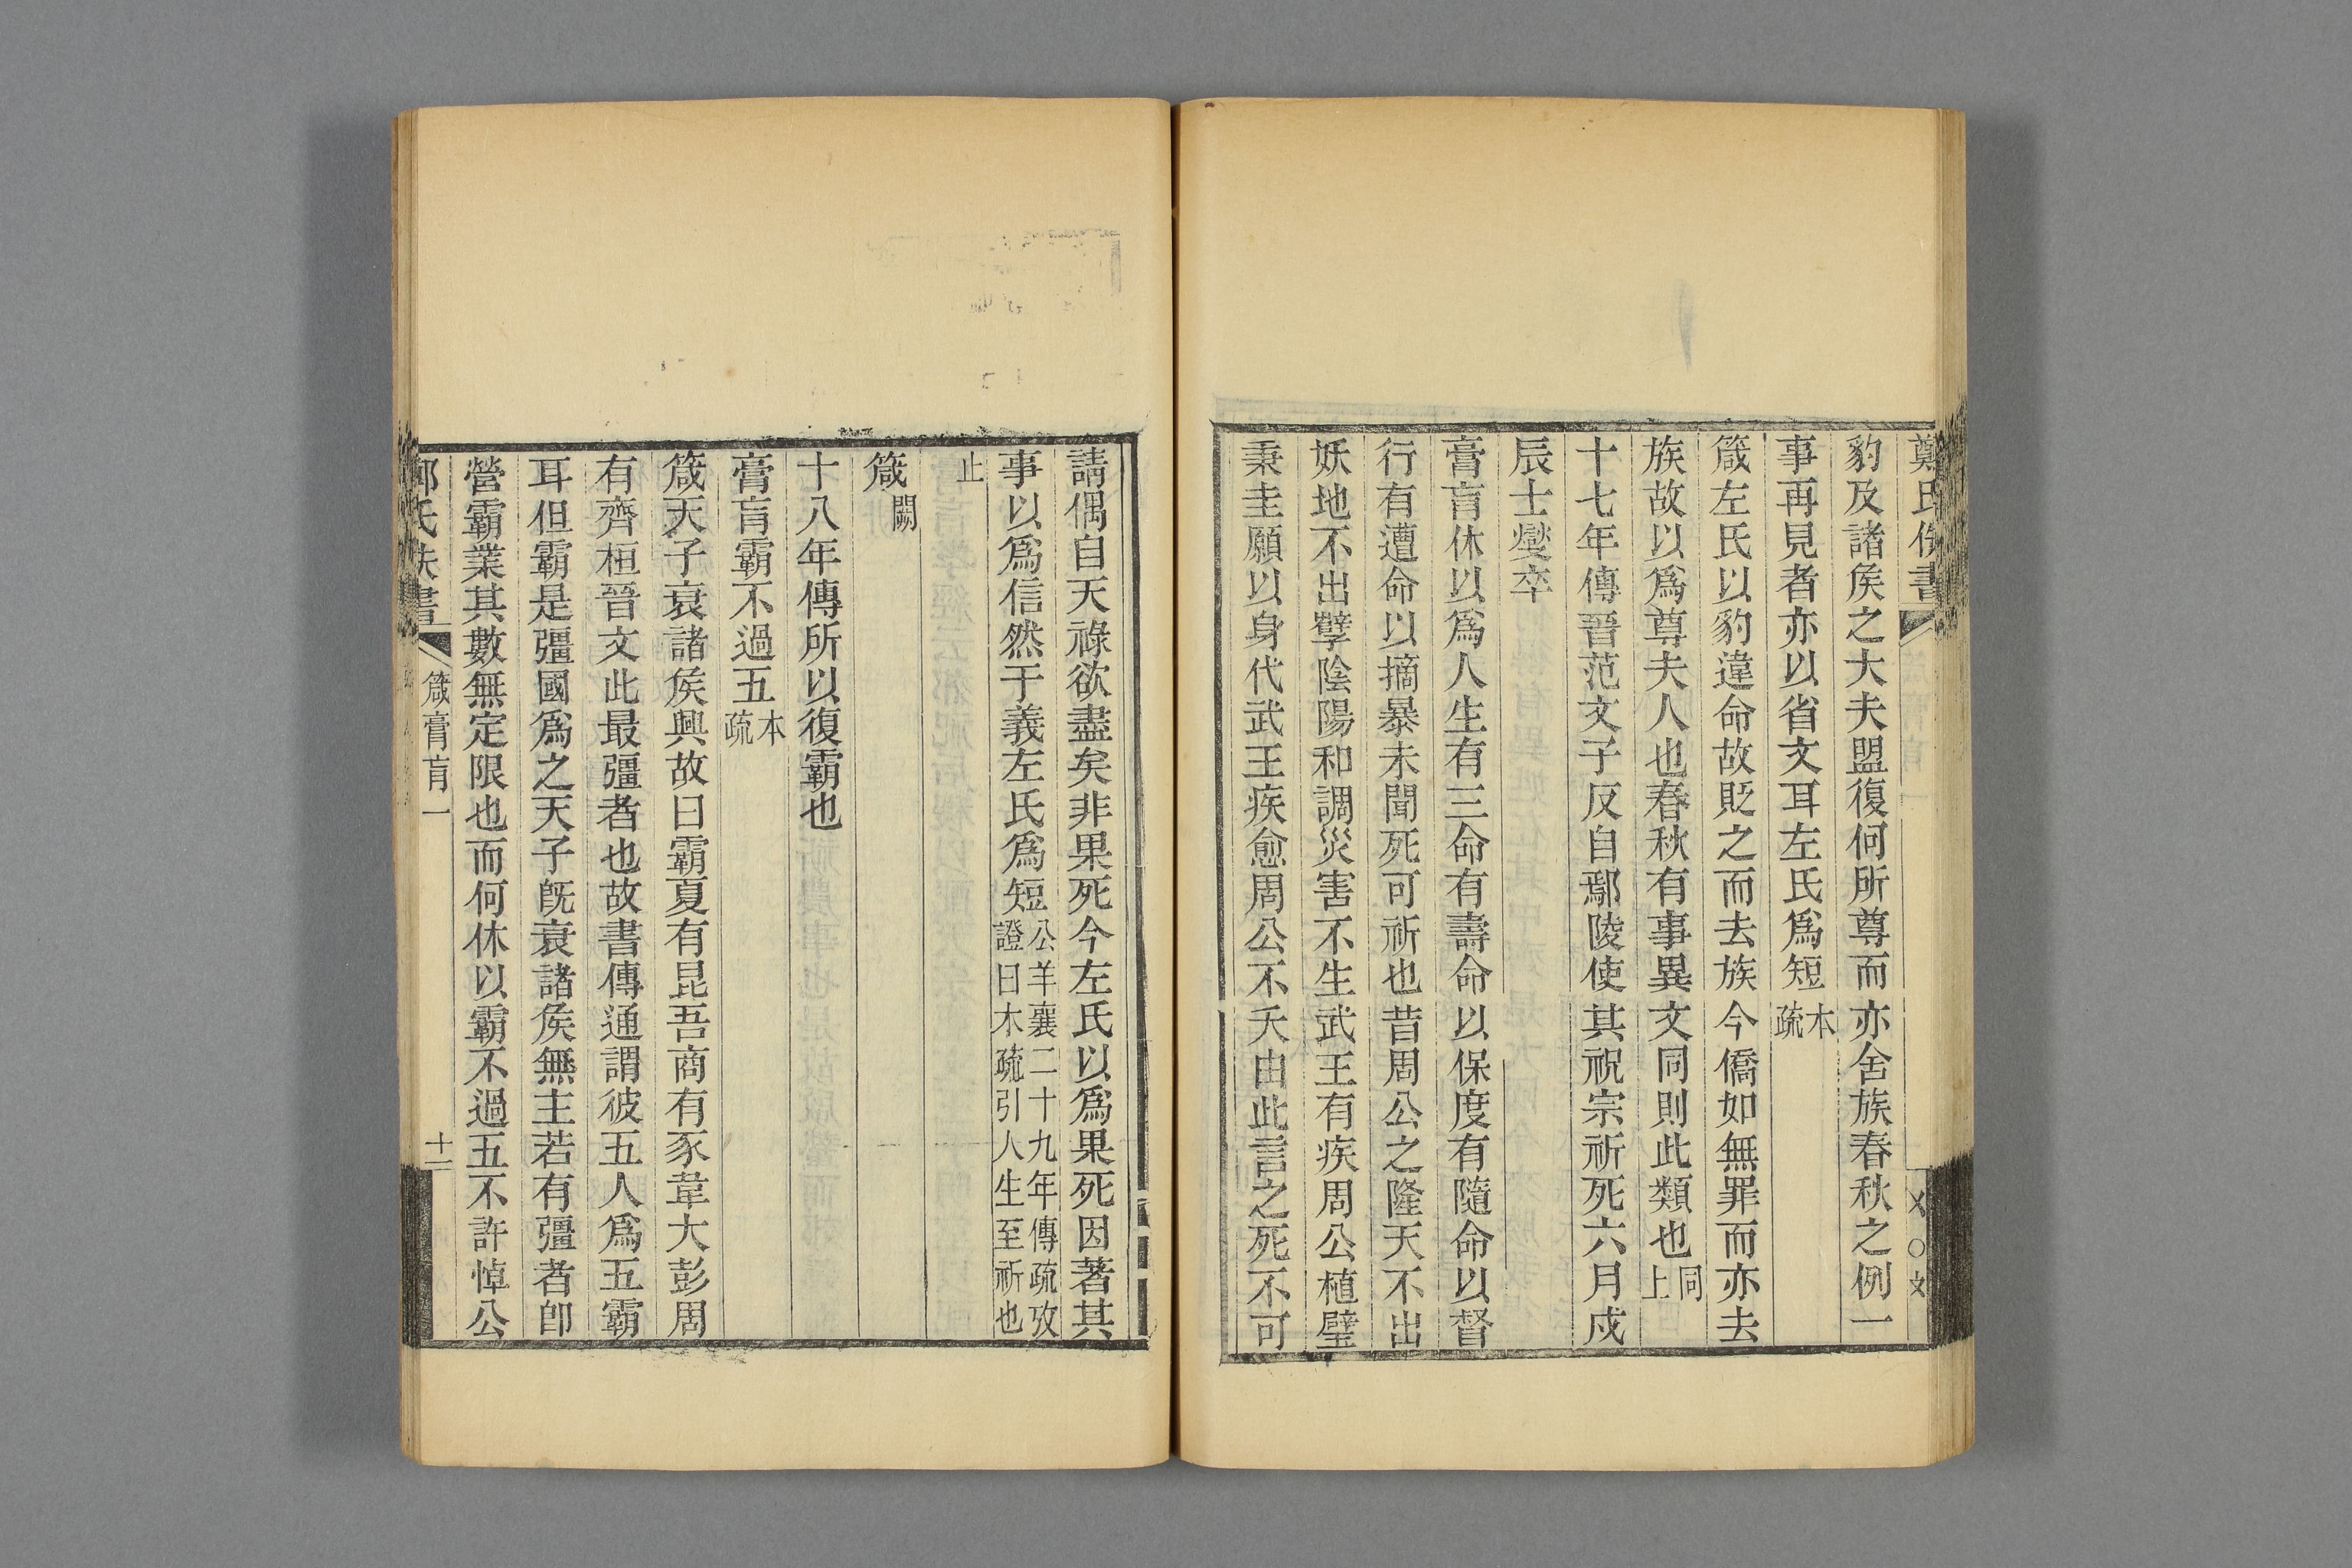 鄭氏佚書
豹及諸矦之大夫盟復何所尊而亦舍族春秋之例一
事再見者亦以省文耳左氏爲短本疏
箴左氏以豹違命故貶之而去族今僑如無罪而亦去
族故以爲尊夫人也春秋有事異文同則此類也同上
十七年傳晉范文子反自鄢陵使其祝宗祈死六月戊
辰士燮卒
膏肓休以爲人生有三命有壽命以保度有隨命以督
行有遭命以摘暴未聞死可祈也昔周公之隆天不出
妖地不出孽陰陽和調災害不生武王有疾周公植璧
秉圭願以身代武王疾愈周公不夭由此言之死不可
請偶自天祿欲盡矣非果死今左氏以爲果死因著其
事以爲信然于義左氏爲短公羊襄二十九年傳疏攷證曰本疏引人生至祈也
止
箴闕
十八年傳所以復霸也
膏肓霸不過五本疏
箴天子衰諸矦興故曰霸夏有昆吾商有豕韋大彭周
有齊桓晉文此最彊者也故書傳通謂彼五人爲五霸
耳但霸是彊國爲之天子旣衰諸矦無主若有彊者卽
營霸業其數無定限也而何休以霸不過五不許悼公
鄭氏佚書 箴膏肓一 十二